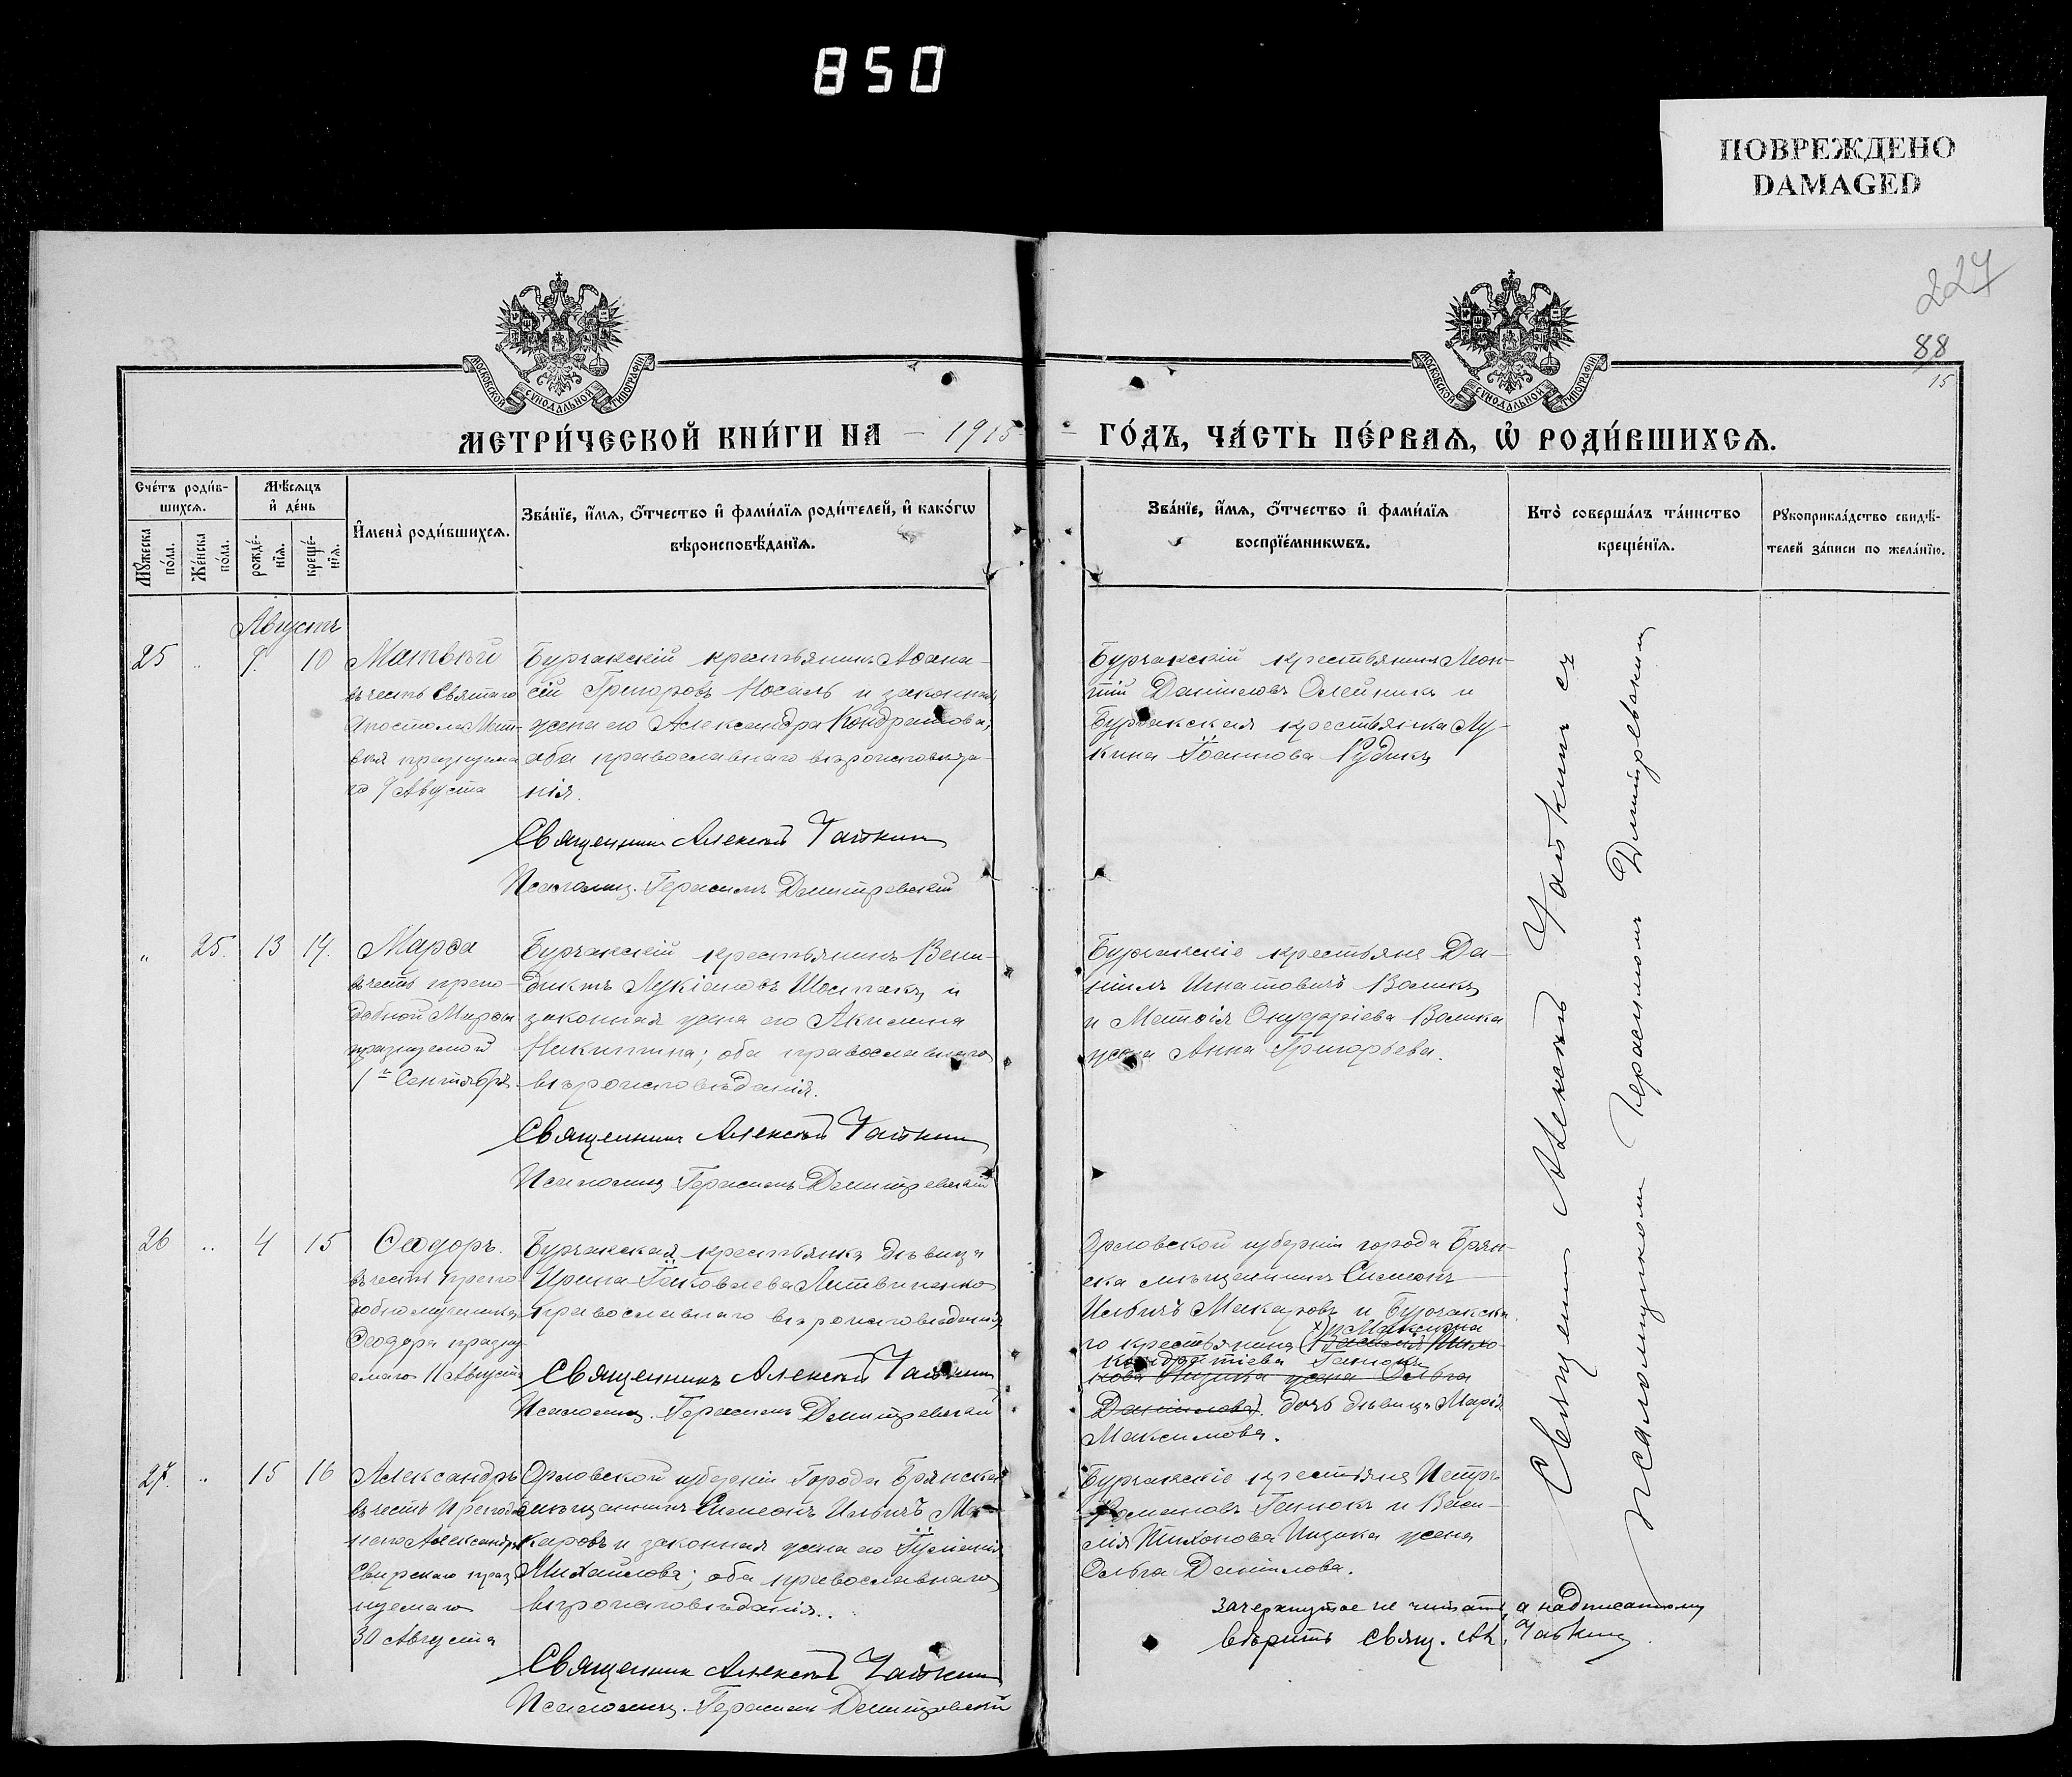 850
ПОВРЕЖДЕНО
DAMAGED
227
88
15
МОСКОВСКОЙ СѴНОДАЛЬНОЙ ТИПОГРАФІИ
МОСКОВСКОЙ СѴНОДАЛЬНОЙ ТИПОГРАФІИ
МЕТРИ́ЧЕСКОЙ КНИ́ГИ НА 1915 ГО́ДЪ, ЧА́СТЬ ПЕ́РВАѦ, Ѡ҆ РОДИ́ВШИХСѦ.
Сче́тъ роди́в-
шихсѧ.
Мꙋ́жеска по́ла.
Же́нска по́ла.
Мѣ́сѧцъ
и҆ де́нь
рожде́-
нїѧ.
креще́-
нїѧ.
И҆мена̀ роди́вшихсѧ.
Зва́нїе, и҆́мѧ, ѻ҆́тчество и҆ фами́лїѧ роди́телей, и҆ како́гѡ
вѣроисповѣ́данїѧ.
Зва́нїе, и҆́мѧ, ѻ҆́тчество и҆ фами́лїѧ
воспрїе́мникѡвъ.
Кто̀ соверша́лъ та́инство
креще́нїѧ.
Рꙋкоприкла́дство свидѣ́-
телей за́писи по жела́нїю.
Августъ
25 „ 9. 10 Матѳѣй
въ честь Святаго
Апостола Мат-
ѳея празднуема
го 9 Августа
Бурчакскій крестьянинъ Аѳана-
сій Григоровъ Носаль и законная
жена его Александра Кондратова,
оба православнаго вѣроисповѣда-
нія.
Священникъ Алексѣй Чайкинъ
Псаломщ. Герасимъ Димитревскій
Бурчакскій крестьянинъ Леон-
тій Даніиловъ Олейникъ и
Бурчакская крестьянка Лу-
кина Іоаннова Рудикъ
„ 25. 13 14. Марѳа
въ честь препо-
добной Марѳы
празднуемой
1го Сентября.
Бурчакскій крестьянинъ Вени-
диктъ Лукіановъ Шостакъ и
законная жена его Акилина
Никитина; оба православнаго
вѣроисповѣданія.
Священникъ Алексѣй Чайкинъ
Псаломщ Герасимъ Димитревскій
Бурчакскіе крестьяне Да-
ніилъ Игнатовичъ Воликъ
и Матѳія Онуфріева Волика
жена Анна Григорьева.
26 „ 4 15 Ѳеодоръ.
въ честь препо-
добномученика
Ѳеодора празну-
емаго 11 Августа
Бурчакская крестьянка дѣвица
Ирина Іаковлева Литвиненко
православнаго вѣроисповѣданія
Священникъ Алексѣй Чайкинъ
Псаломщ. Герасимъ Димитревскій
Орловской губерніи города Брян-
ска мѣщанинъ Симеонъ
Ильичъ Макаровъ и Бурчакска
х) и Максима
го крестьянина (Василія Тихо-
Кондратіева Ганюкъ
нова Пизика жена Ольга
Даніилова). дочь дѣвица Марія
Максимова.
27. „ 15 16 Александръ
въ честь Преподоб
наго Александра
Свирскаго праз
нуемаго
30 Августа
Орловской губерніи Города Брянска
мѣщанинъ Симеонъ Ильичъ Ма-
каровъ и законная жена его Іуліанія
Михайлова; оба православнаго
вѣроисповѣданія.
Священникъ Алексѣй Чайкинъ
Псаломщ. Герасимъ Димитревскій
Бурчакскіе крестьяне Петръ
Романовъ Ганюкъ и Васи-
лія Тихонова Пизика жена
Ольга Даніилова.
зачеркнутое не читать, а надписанному
вѣрить свящ. Ал. Чайкинъ.
Священ Алексѣй Чайкинъ съ
Псаломщикомъ Герасимомъ Димитревскимъ